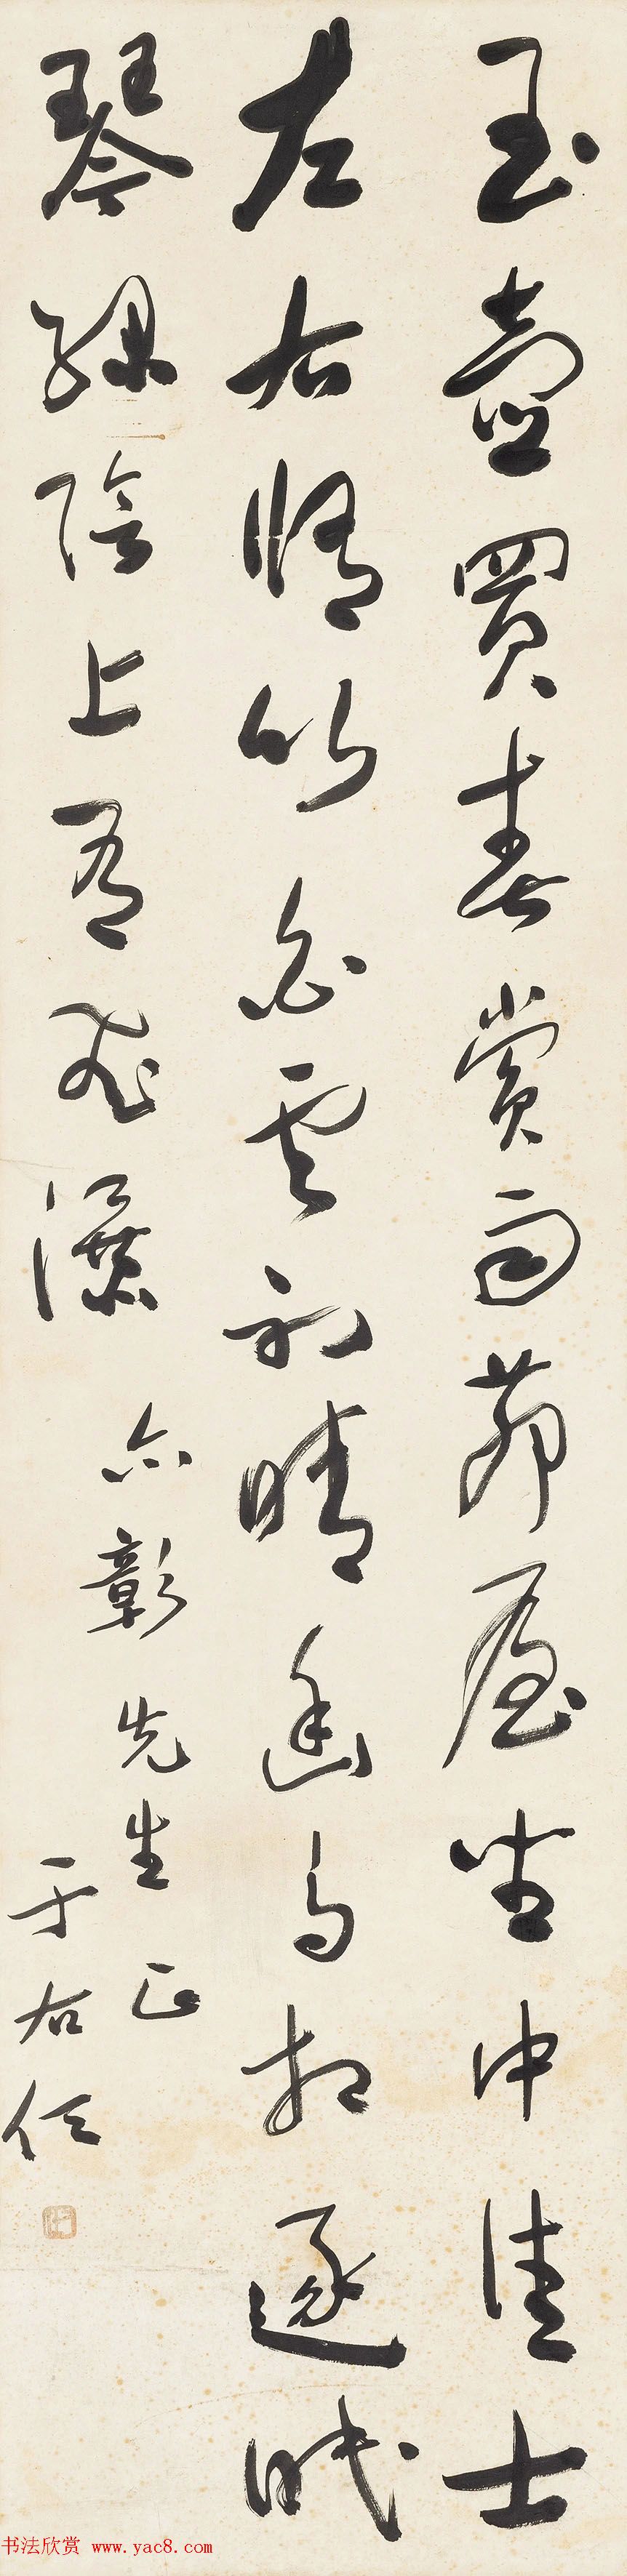 玉壺買春賞雨茆屋坐中佳士
左右脩竹白雲初晴幽鳥相逐眠
琴綠陰上有飛瀑
彰先生正
于右任
书法欣赏 www.yac8.com